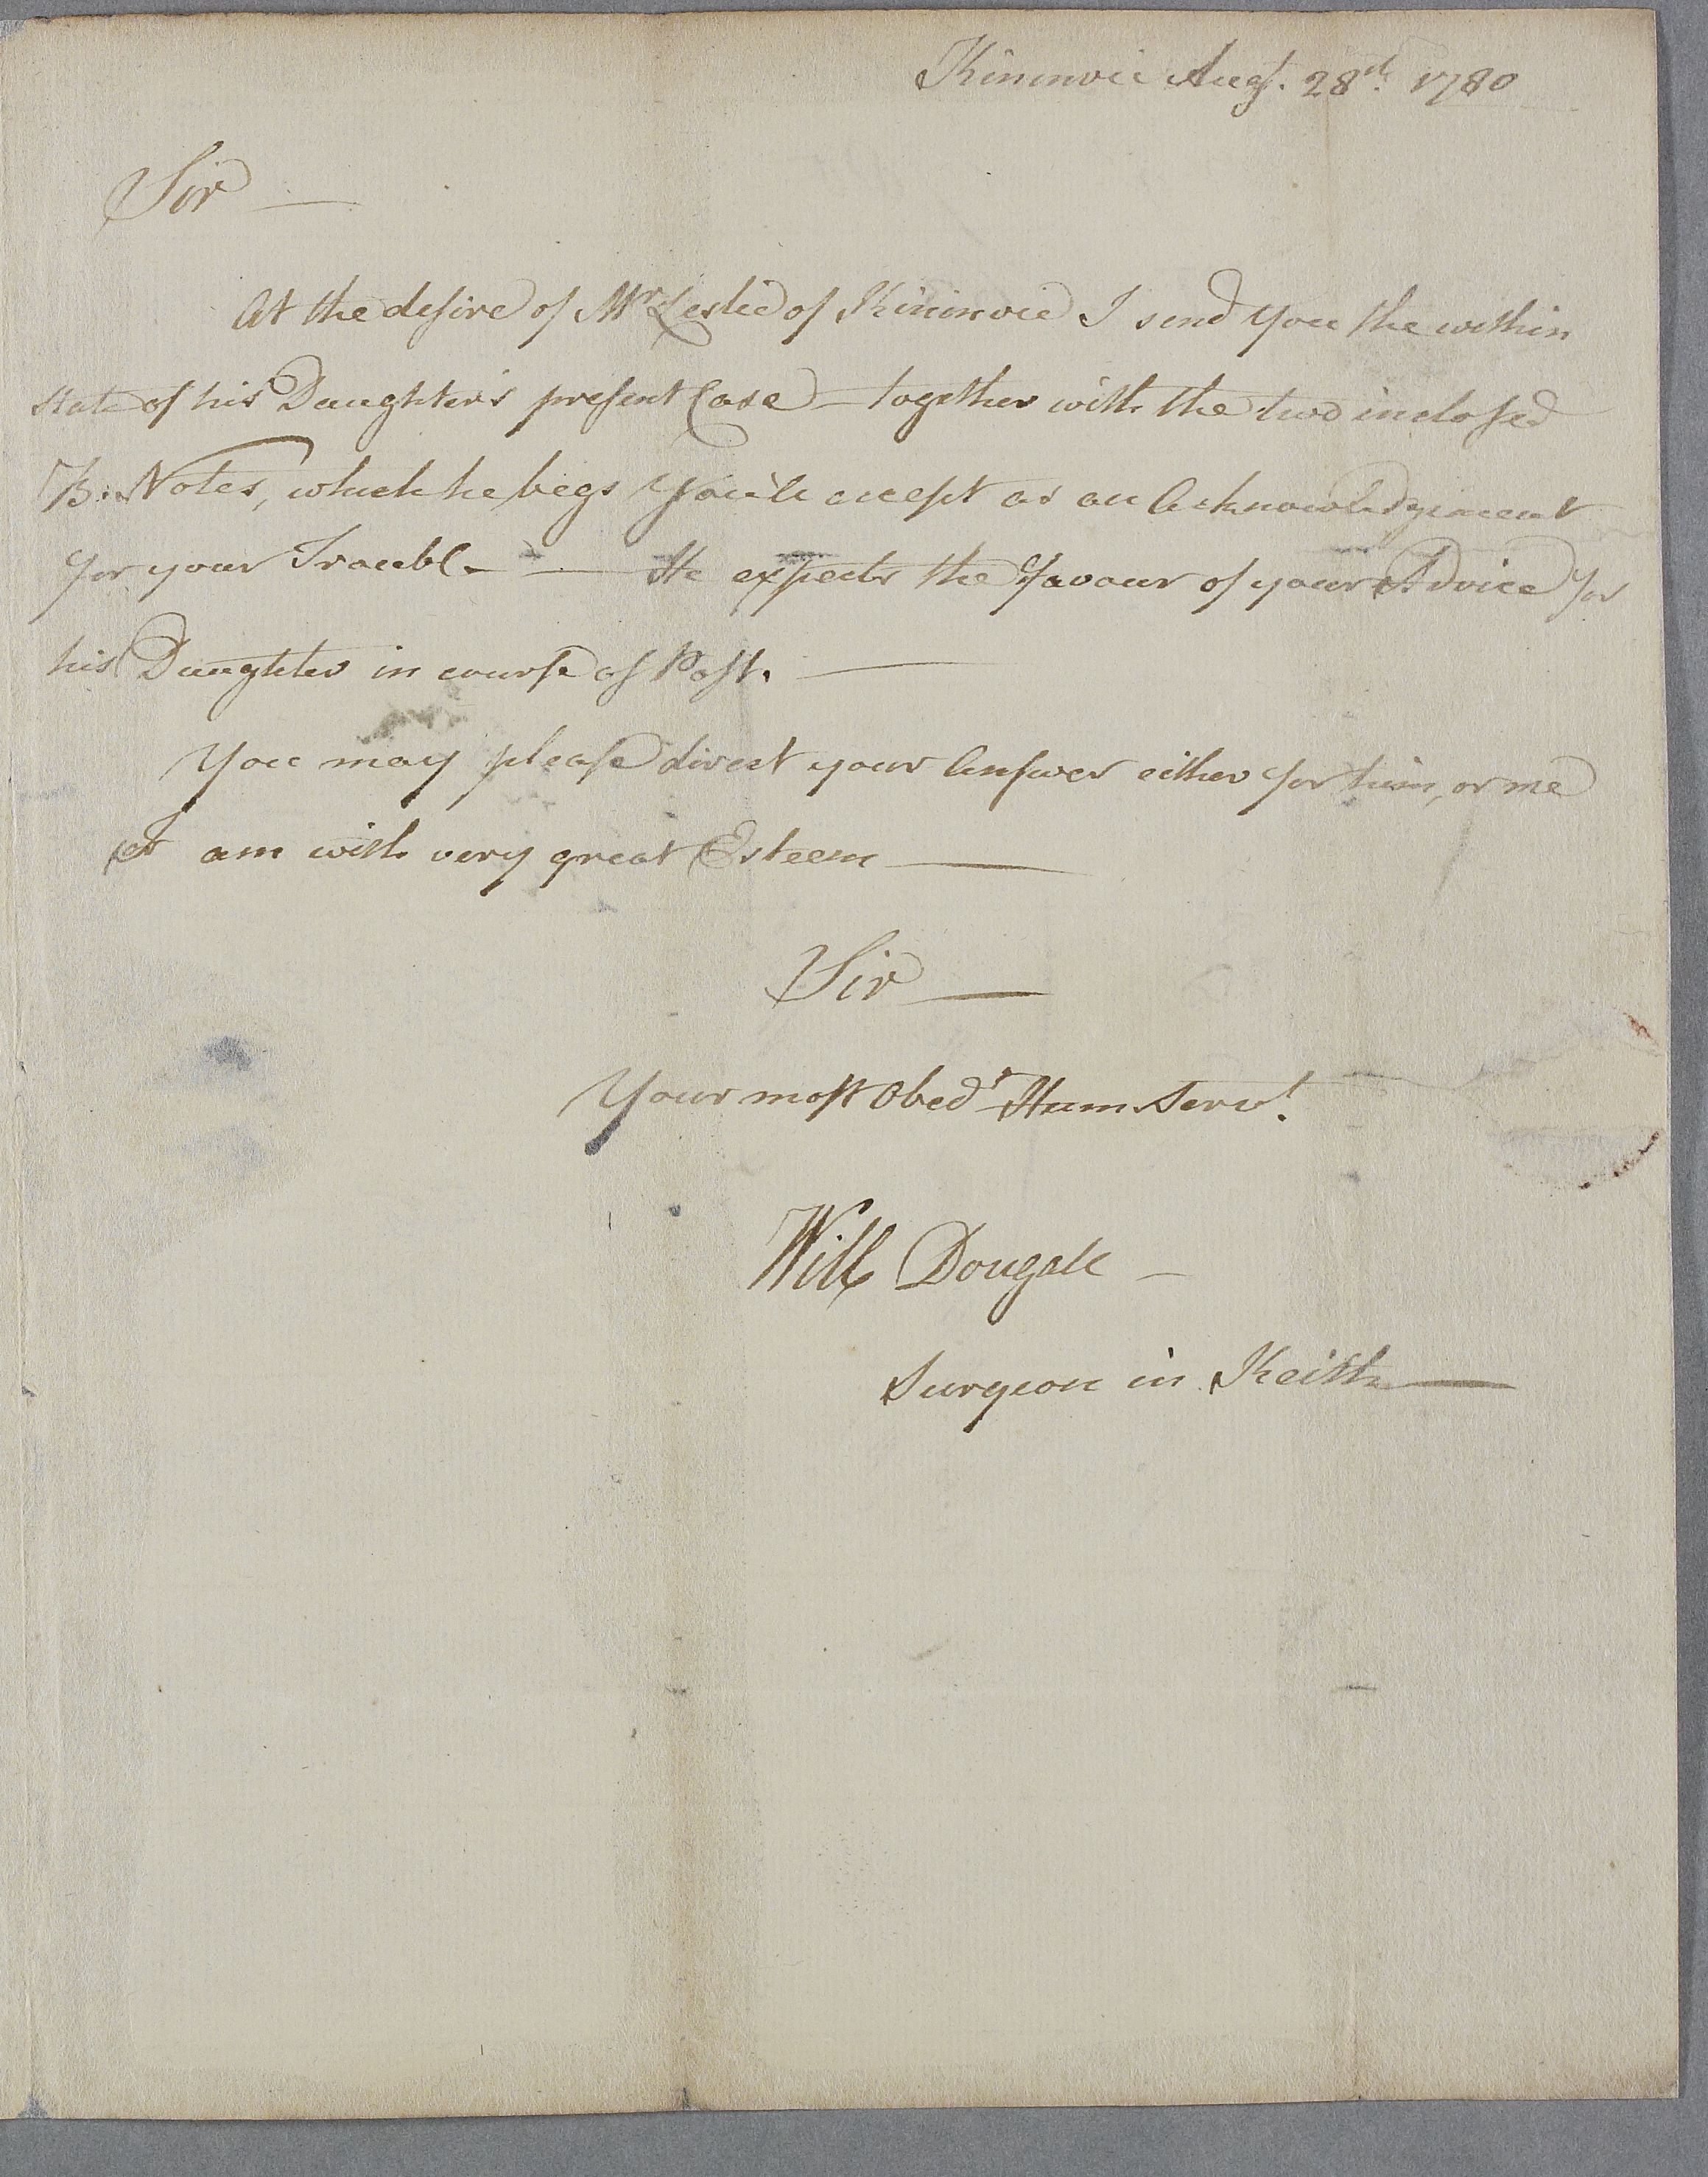 Kininvie Augt. 28th. 1780
Sir —
At the desire of Mr Leslie of Kininvie I send you the within
state of his Daughter's present Case — together with the two inclosed
B: Notes, which he begs you'll accept as an Acknowledgement
for your Trouble — He expects the favour of your Advice for
his Daughter in course of Post. —
You may please direct your Answer either for him, or me
I am with very great Esteem —
Sir —
Your most Obedt Hum. Servt.
Will Dougall —
Surgeon in Keith —